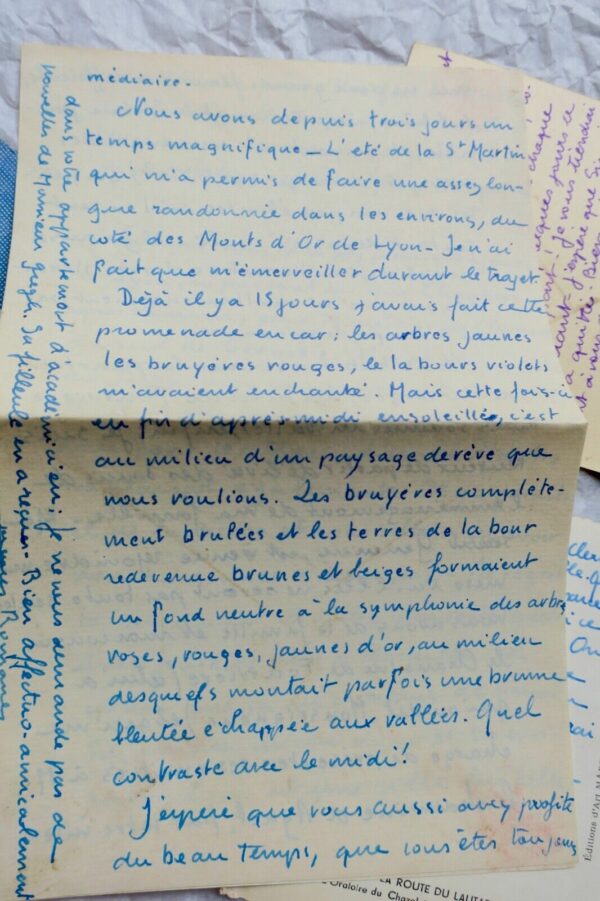 médiaire.
Nous avons depuis trois jours un
temps magnifique _ L'été de la St Martin
qui m'a permis de faire une assez lon-
gue randonnée dans les environs, du
coté des Monts d'Or de Lyon - Je n'ai
fait que m'émerveiller durant le trajet.
Déjà il y a 15 jours j'avais fait cette
promenade en car ; les arbres jaunes
les bruyères rouges, le labours violets
m'avaient enchanté. Mais cette fois-ci
en fin d'après-midi ensoleillée, c'est
au milieu d'un paysage de rêve que
nous roulions. Les bruyères complète-
ment brulées et les terres de labour
redevenue brunes et beiges formaient
un fond neutre à la symphonie des arbres
roses, rouges, jaunes d'or, au milieu
desquels montait parfois une brume
bleutée échappée aux vallées. Quel
contraste avec le midi !
J'espère que vous aussi avez profité
du beau temps, que vous êtes toujours
dans votre appartement d'académicien ; je ne vous demande pas de
nouvelles de Monsieur Sa filleule en a reçues - Bien affectuo-amicalement
chaque
quelques jours à
Je vous tiendrai
J'espère que
quitter. Bien
à vous
LA ROUTE DU LAUTA
Oratoire du Chazel
Editions d'Art